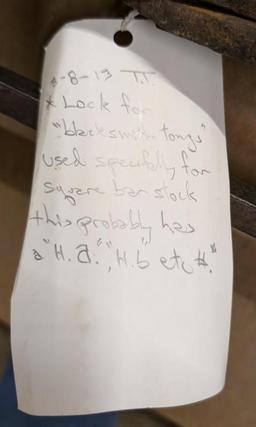 -8-13 TT.
* Look for
"blacksmith tongs"
used specifally for
sqyare bar stock
this probably has
a "H.a.", "H.b etc #."